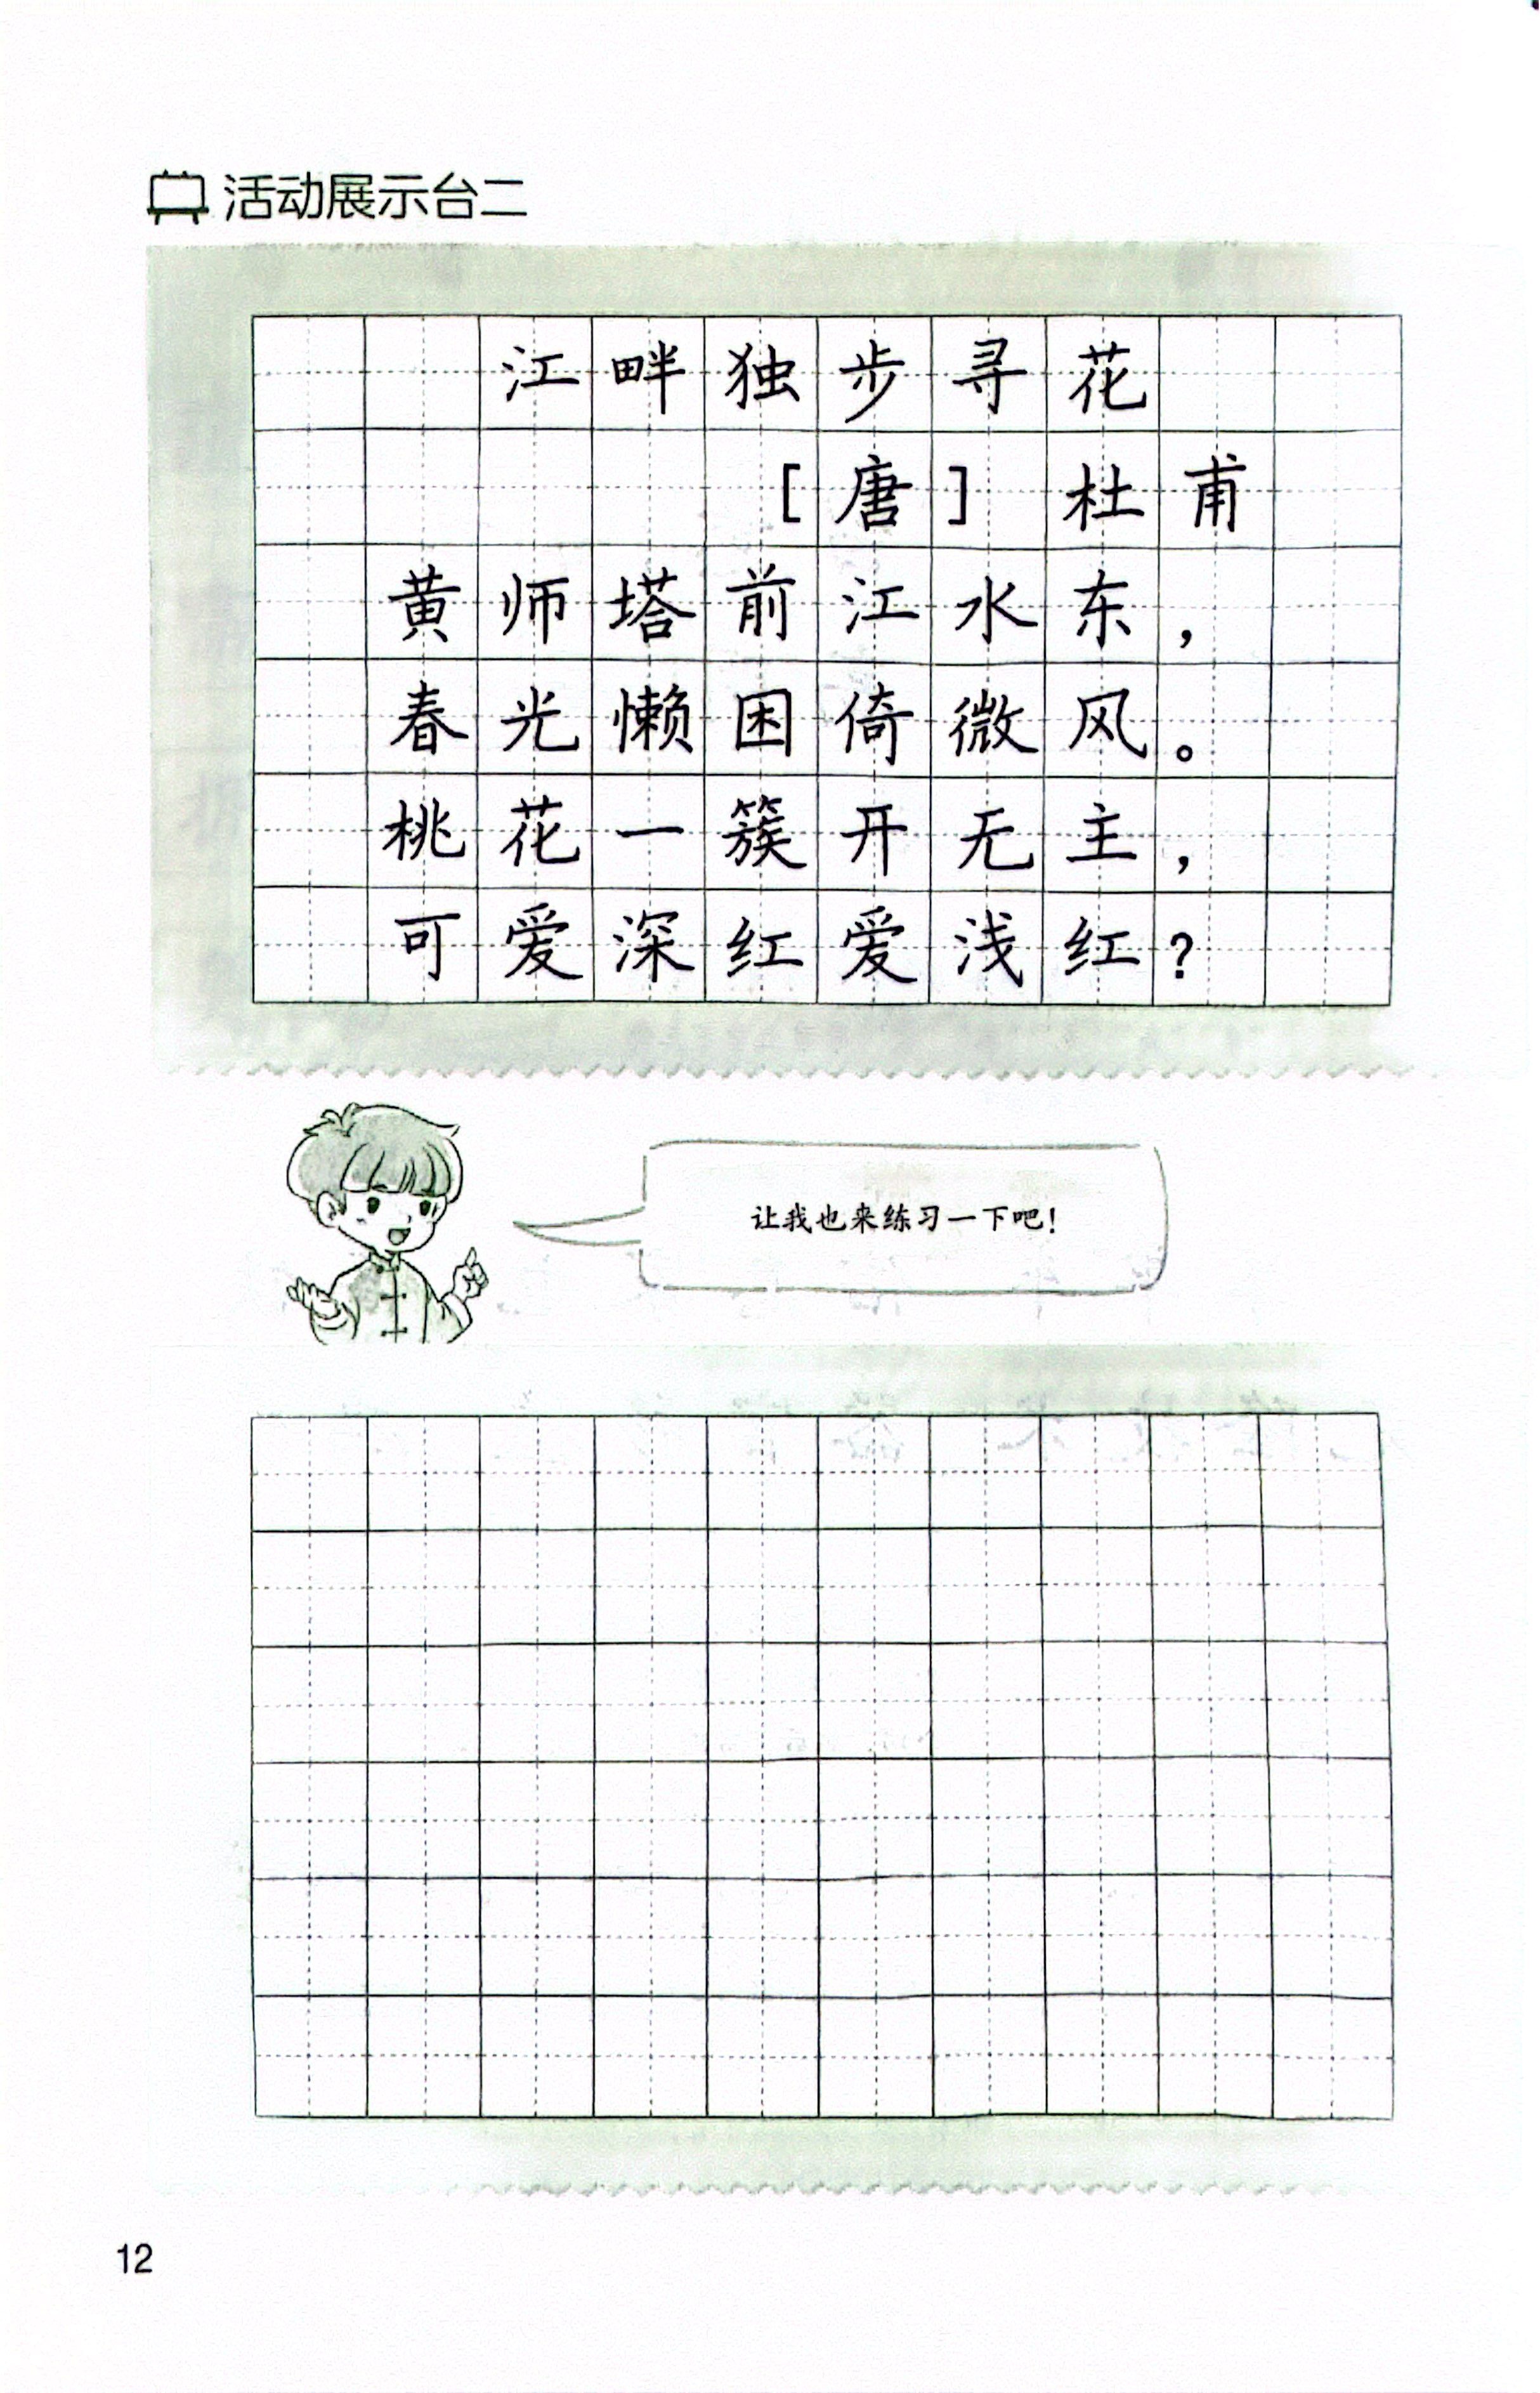 活动展示台二
江畔独步寻花
[唐] 杜甫
黄师塔前江水东，
春光懒困倚微风。
桃花一簇开无主，
可爱深红爱浅红？
让我也来练习一下吧！
12